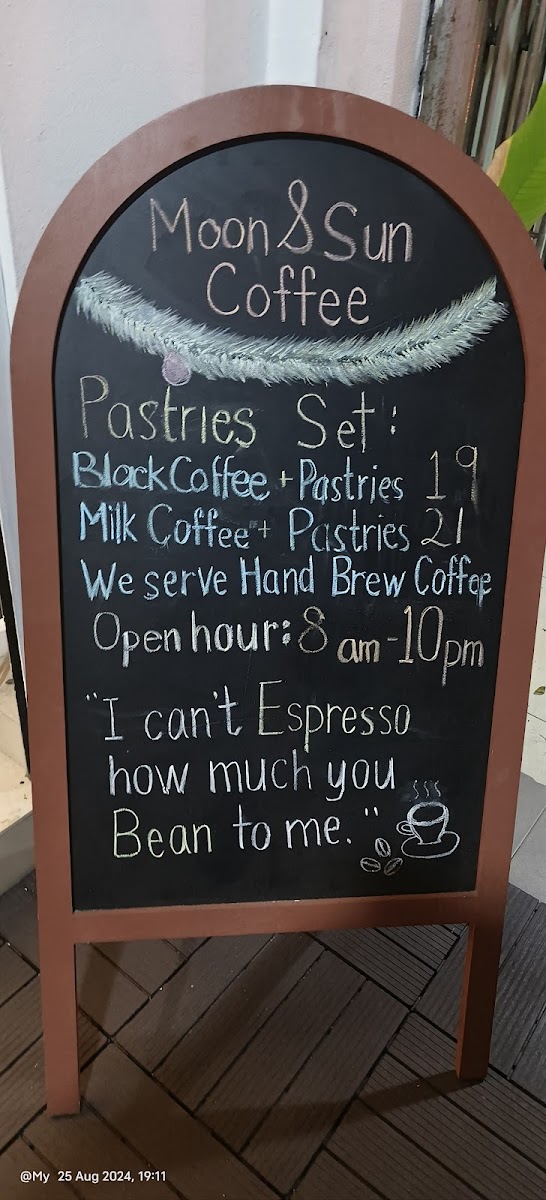 Moon & Sun
Coffee
Pastries Set:
Black Coffee + Pastries 19
Milk Coffee + Pastries 21
We serve Hand Brew Coffee
Open hour: 8 am - 10 pm
"I can't Espresso
how much you
Bean to me."
@My 25 Aug 2024, 19:11